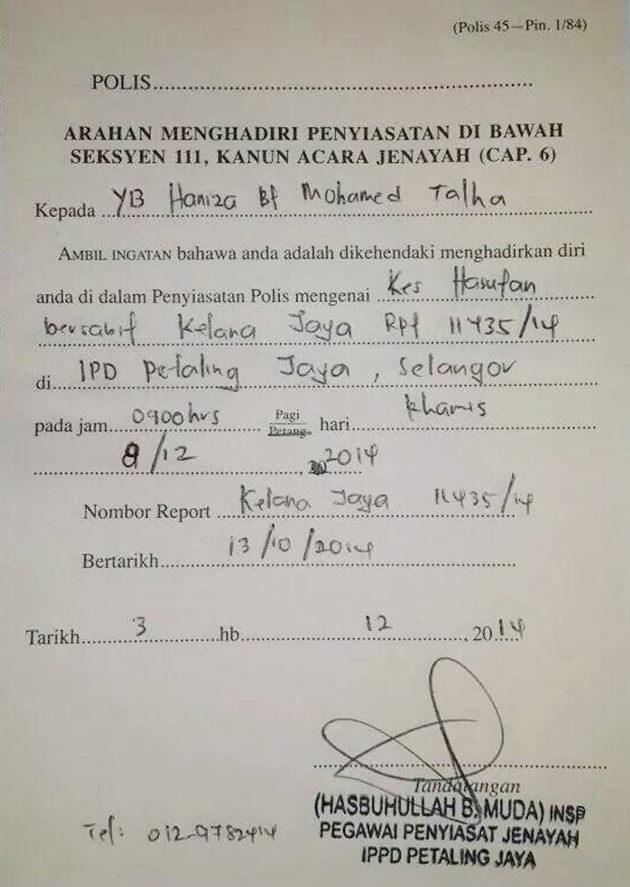 (Polis 45—Pin. 1/84)
POLIS
ARAHAN MENGHADIRI PENYIASATAN DI BAWAH
SEKSYEN 111, KANUN ACARA JENAYAH (CAP. 6)
Kepada YB Haniza Bt Mohamed Talha
AMBIL INGATAN bahawa anda adalah dikehendaki menghadirkan diri
anda di dalam Penyiasatan Polis mengenai Kes Hasutan
bersabit Kelana Jaya Rpt 11435/14
di IPD Petaling Jaya, Selangor
pada jam 0900hrs Pagi Petang hari Khamis
/12, 2014
Nombor Report Kelana Jaya 11435/14
Bertarikh 13/10/2014
Tarikh 3 hb 12, 2014
Tandatangan
(HASBUHULLAH B. MUDA) INSP
PEGAWAI PENYIASAT JENAYAH
IPPD PETALING JAYA
Tel: 012-9782414